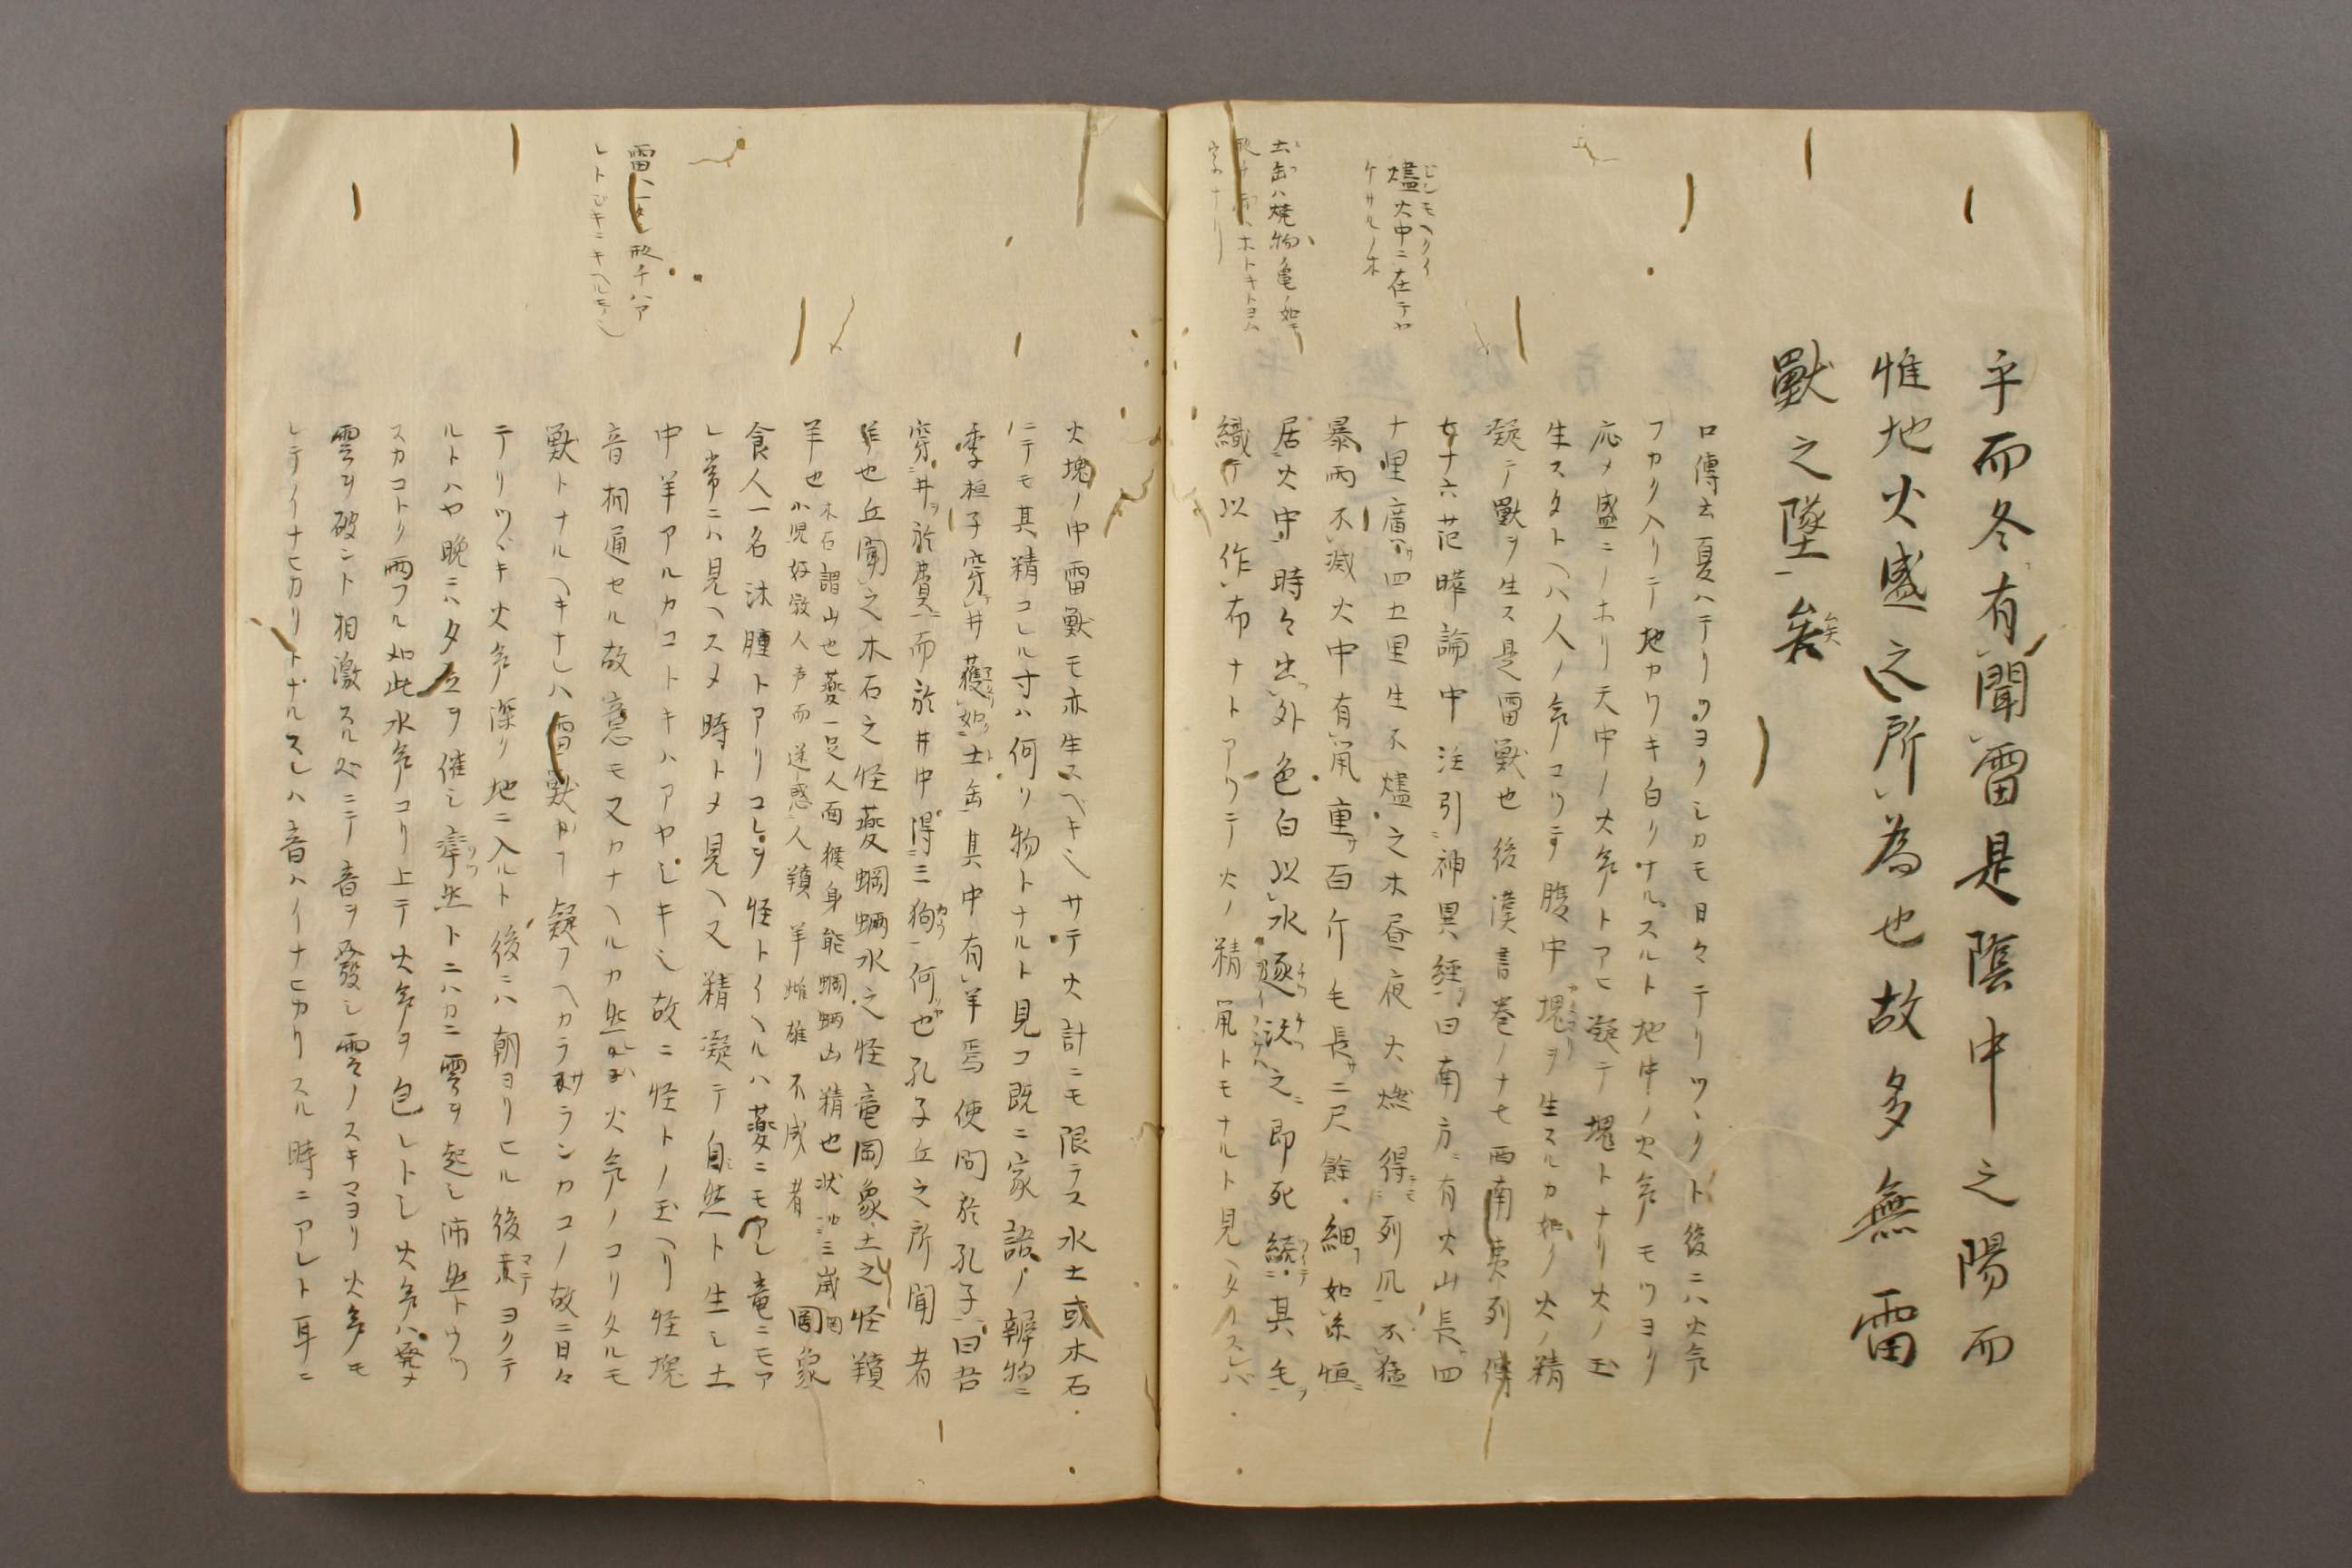 乎而冬有聞雷是陰中之陽而
惟地火盛之所為也故多無雷
獸之墜矣
口傳云夏ハテリツヨクシカモ日々テリツヽクト後ニハ火気
フカク入リテ地カワキ白クナルスルト地中ノ火気モツヨク
応メ盛ニノホリ天中ノ火気トアヒ凝テ塊トナリ火ノ玉
生スタトヘハ人ノ気コリテ腹中塊ヲ生スルカ如ク火ノ精
凝テ獸ヲ生ス是雷獸也後漢書巻ノ七十西南夷列傳
七十六范曄論中注引神異經曰南方有火山長四
十里廣四五里生不燼之木昼夜火燃得列風不猛
暴雨不滅火中有鼠重百斤毛長二尺餘細如糸恒
居火中時々出外色白以水逐沃之即死績其毛
織テ以作布ナトアリテ火ノ精鼠トモナルト見ヘタリスレハ
燼火中ニ在テヤ
ケサルノ木
土缶ハ焼物ノ亀ノ如キ
火塊ノ中雷獸モ亦生スヘキ也サテ火計ニモ限ラス水土或木石
ニテモ其精コレル寸ハ何リ物トナルト見コ既ニ家語ノ辨物ニ
季桓子穿井獲如土缶其中有羊焉使問於孔子曰吾
穿井於費而於井中得三狗何也孔子丘之所聞者
羊也丘聞之木石之怪夔蝄蜽水之怪竜罔象土之怪羵
羊也 木石謂山也夔一足人面猴身能 蝄蜽山精也状如三歳 罔象
小児好斅人声而迷惑人羵羊雌雄不成者
食人一名沐腫トアリコレヲ怪トイヘルハ夔ニモアレ竜ニモア
レ常ニハ見ヘスメ時トメ見ヘ又精凝テ自然ト生シ土
中羊アルカコトキハアヤシキ也故ニ怪トノ玉ヘリ怪塊
音相通セル故意モ又カナヘルカ然レハ火気ノコリタルモ
獸トナルヘキナレハ雷獸ナト疑フヘカラサランカコノ故ニ日々
テリツヽキ火気深ク地ニ入ルト後ニハ朝ヨリヒル後迄ヨクテ
ルトハヤ晩ニハ夕立ヲ催シ㴋然トニハカニ雲ヲ起シ沛然トウツ
スカコトク雨フル如此水気コリ上テ火気ヲ包レトシ火気ハ発メ
雲ヲ破ント相激スル処ニテ音ヲ發シ雲ノスキマヨリ火気モ
レテイナヒカリトナルスレハ音ハイナヒカリスル時ニアレト耳ニ